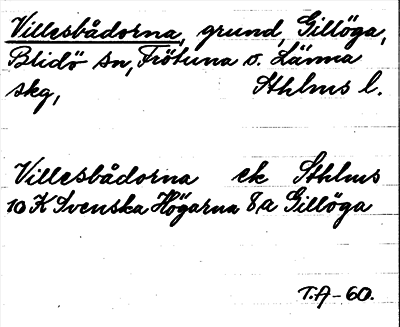 Villesbådorna, grund, Gillöga,
Blidö sn, Frötuna o. Länna
skg, Sthlms l.
Villesbådorna ek Sthlms
10 K Svenska Högarna 8,a Gillöga
T.A-60.